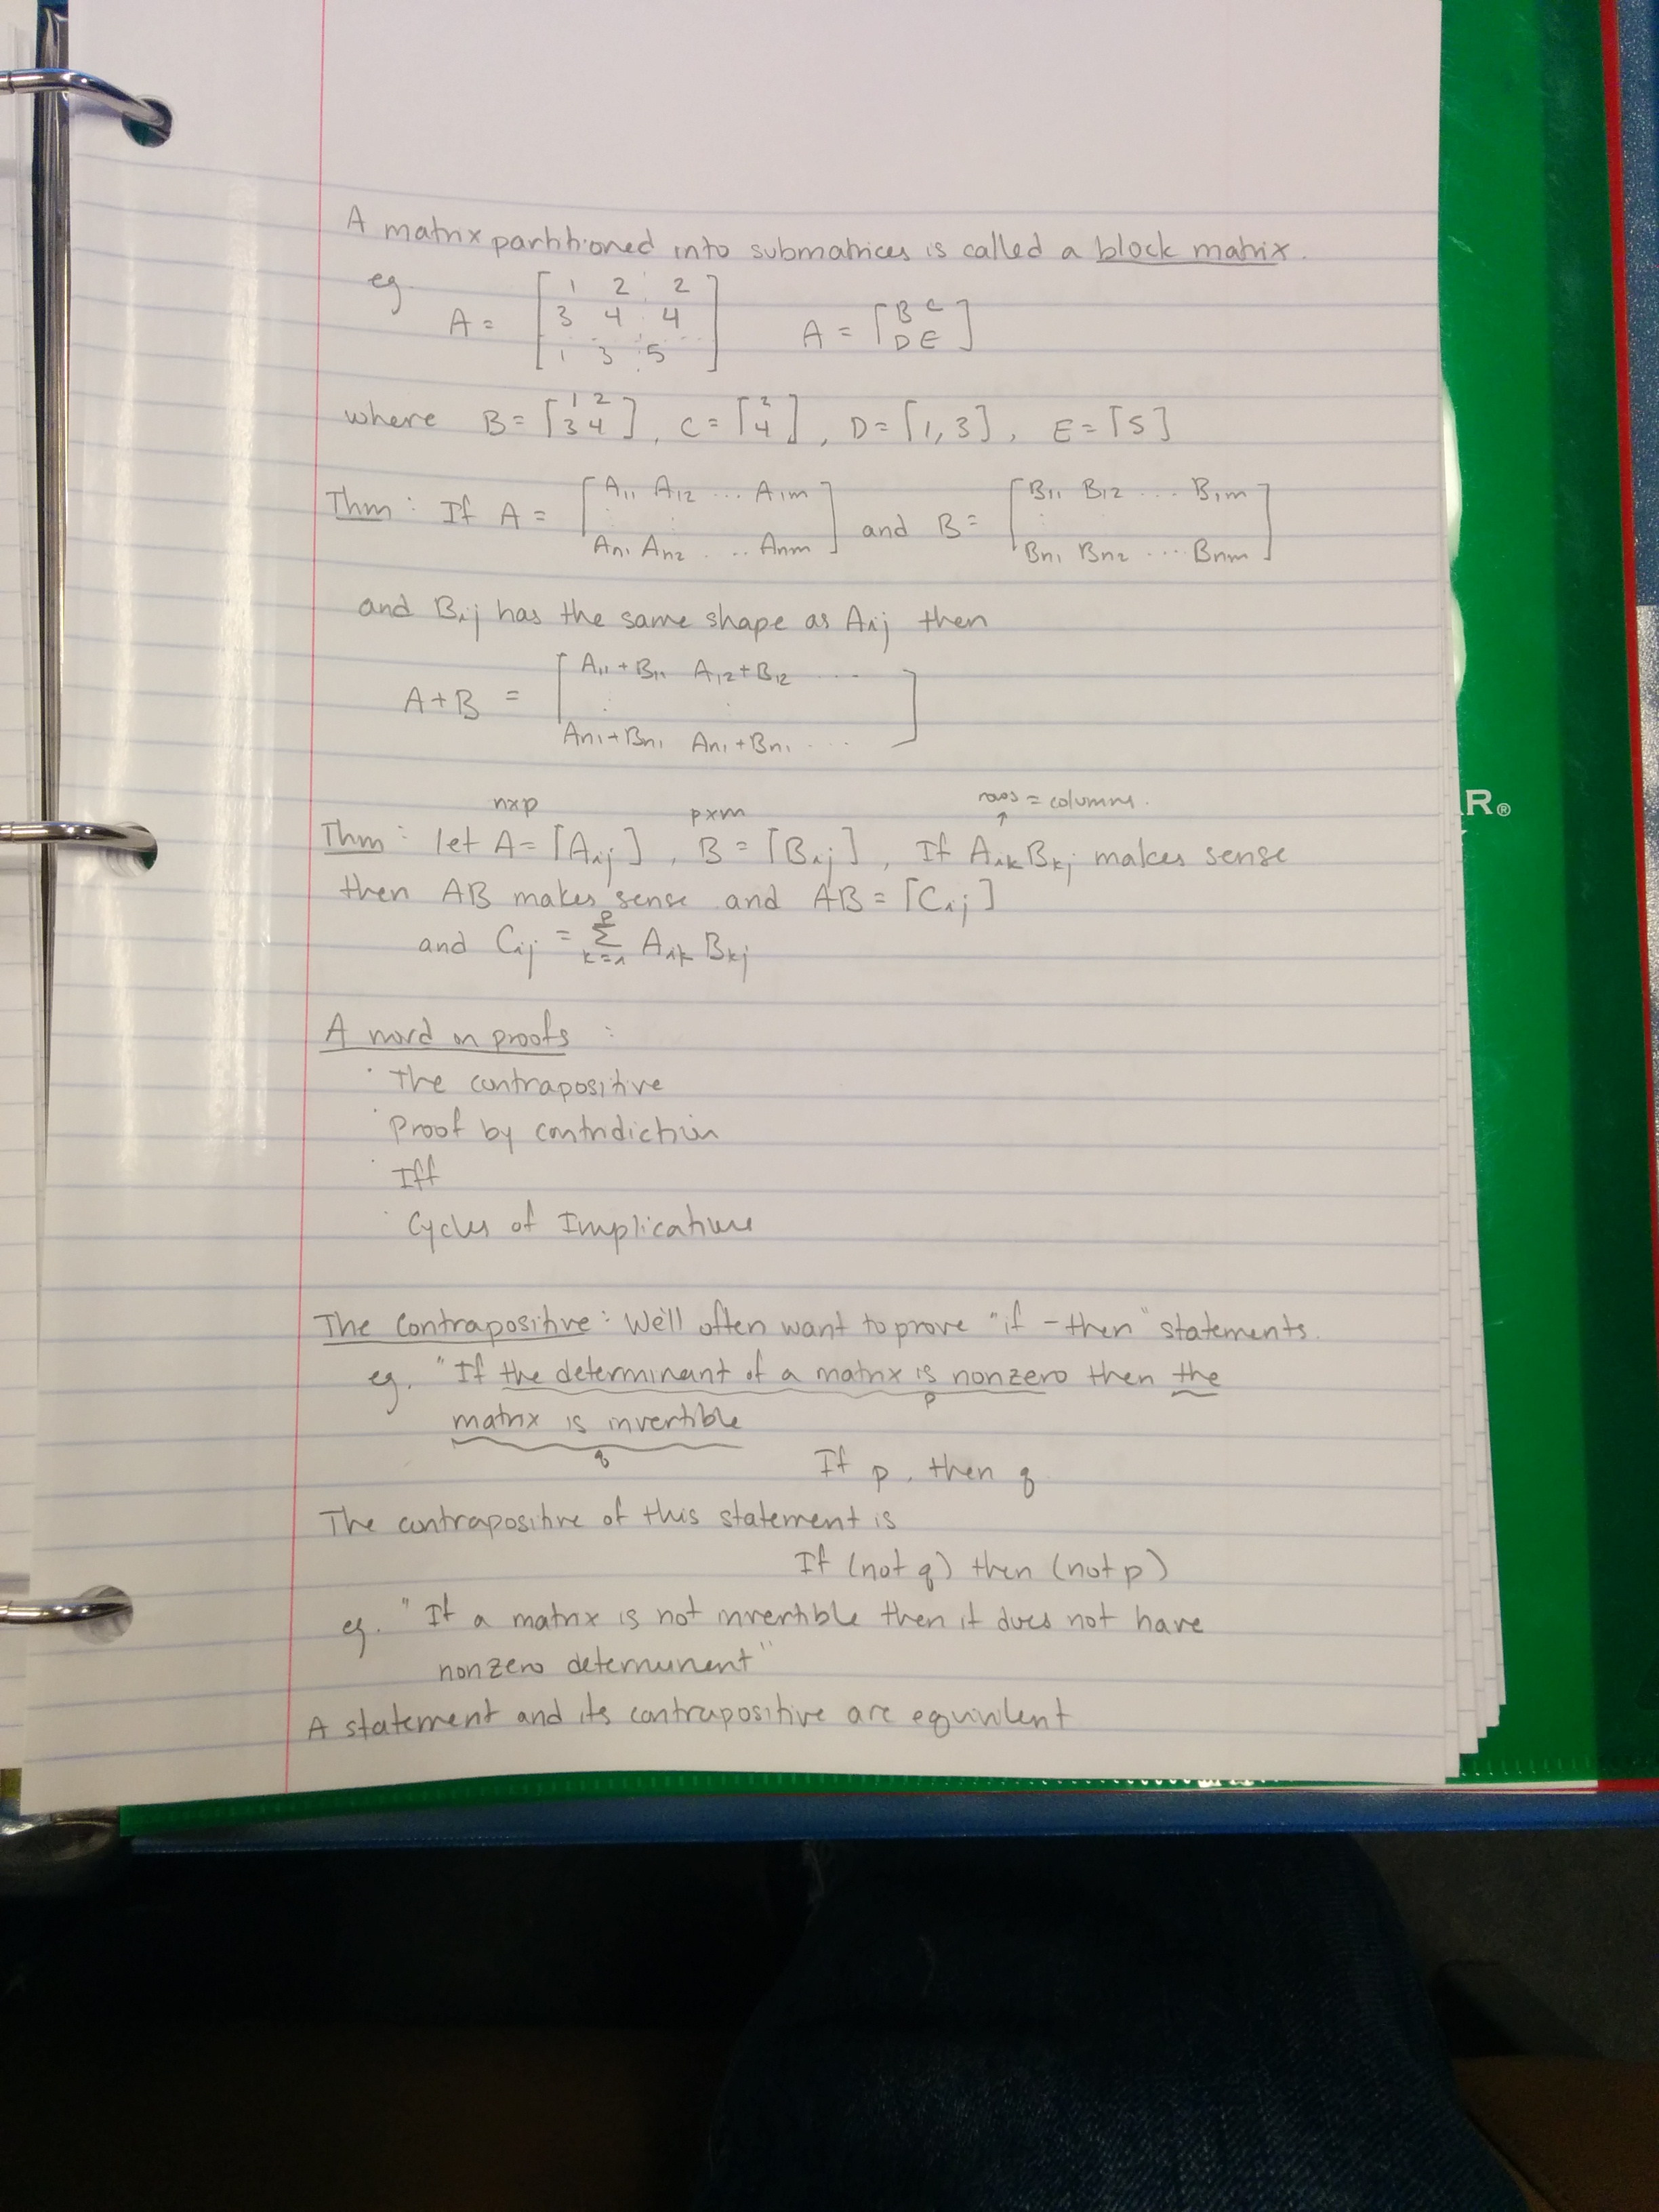 A matrix partitioned into submatrices is called a block matrix.
eg. A = [1 2 2
3 4 4
1 3 5] A = [B C
D E]
where B = [1 2
3 4], C = [2
4], D = [1, 3], E = [5]
Thm: If A = [A11 A12 ... A1m
: :
An1 An2 ... Anm] and B = [B11 B12 ... B1m
:
Bn1 Bn2 ... Bnm]
and Bij has the same shape as Aij then
A+B = [A11+B11 A12+B12 ...
: :
An1+Bn1 An1+Bn1 ...]
nxp pxm rows = columns.
↑
Thm: let A = [Aij], B = [Bij], If Aik Bkj makes sense
then AB makes sense and AB = [Cij]
and Cij = Σ_{k=1}^{p} Aik Bkj
A word on proofs :
· The contrapositive
· Proof by contridiction
· Iff
· Cycles of Implications
The Contrapositive: We'll often want to prove "if - then" statements.
eg. "If the determinant of a matrix is nonzero then the
p
matrix is invertible
q
If p, then q
The contrapositive of this statement is
If (not q) then (not p)
eg. "If a matrix is not invertible then it does not have
nonzero determinent"
A statement and its contrapositive are equivilent
R®